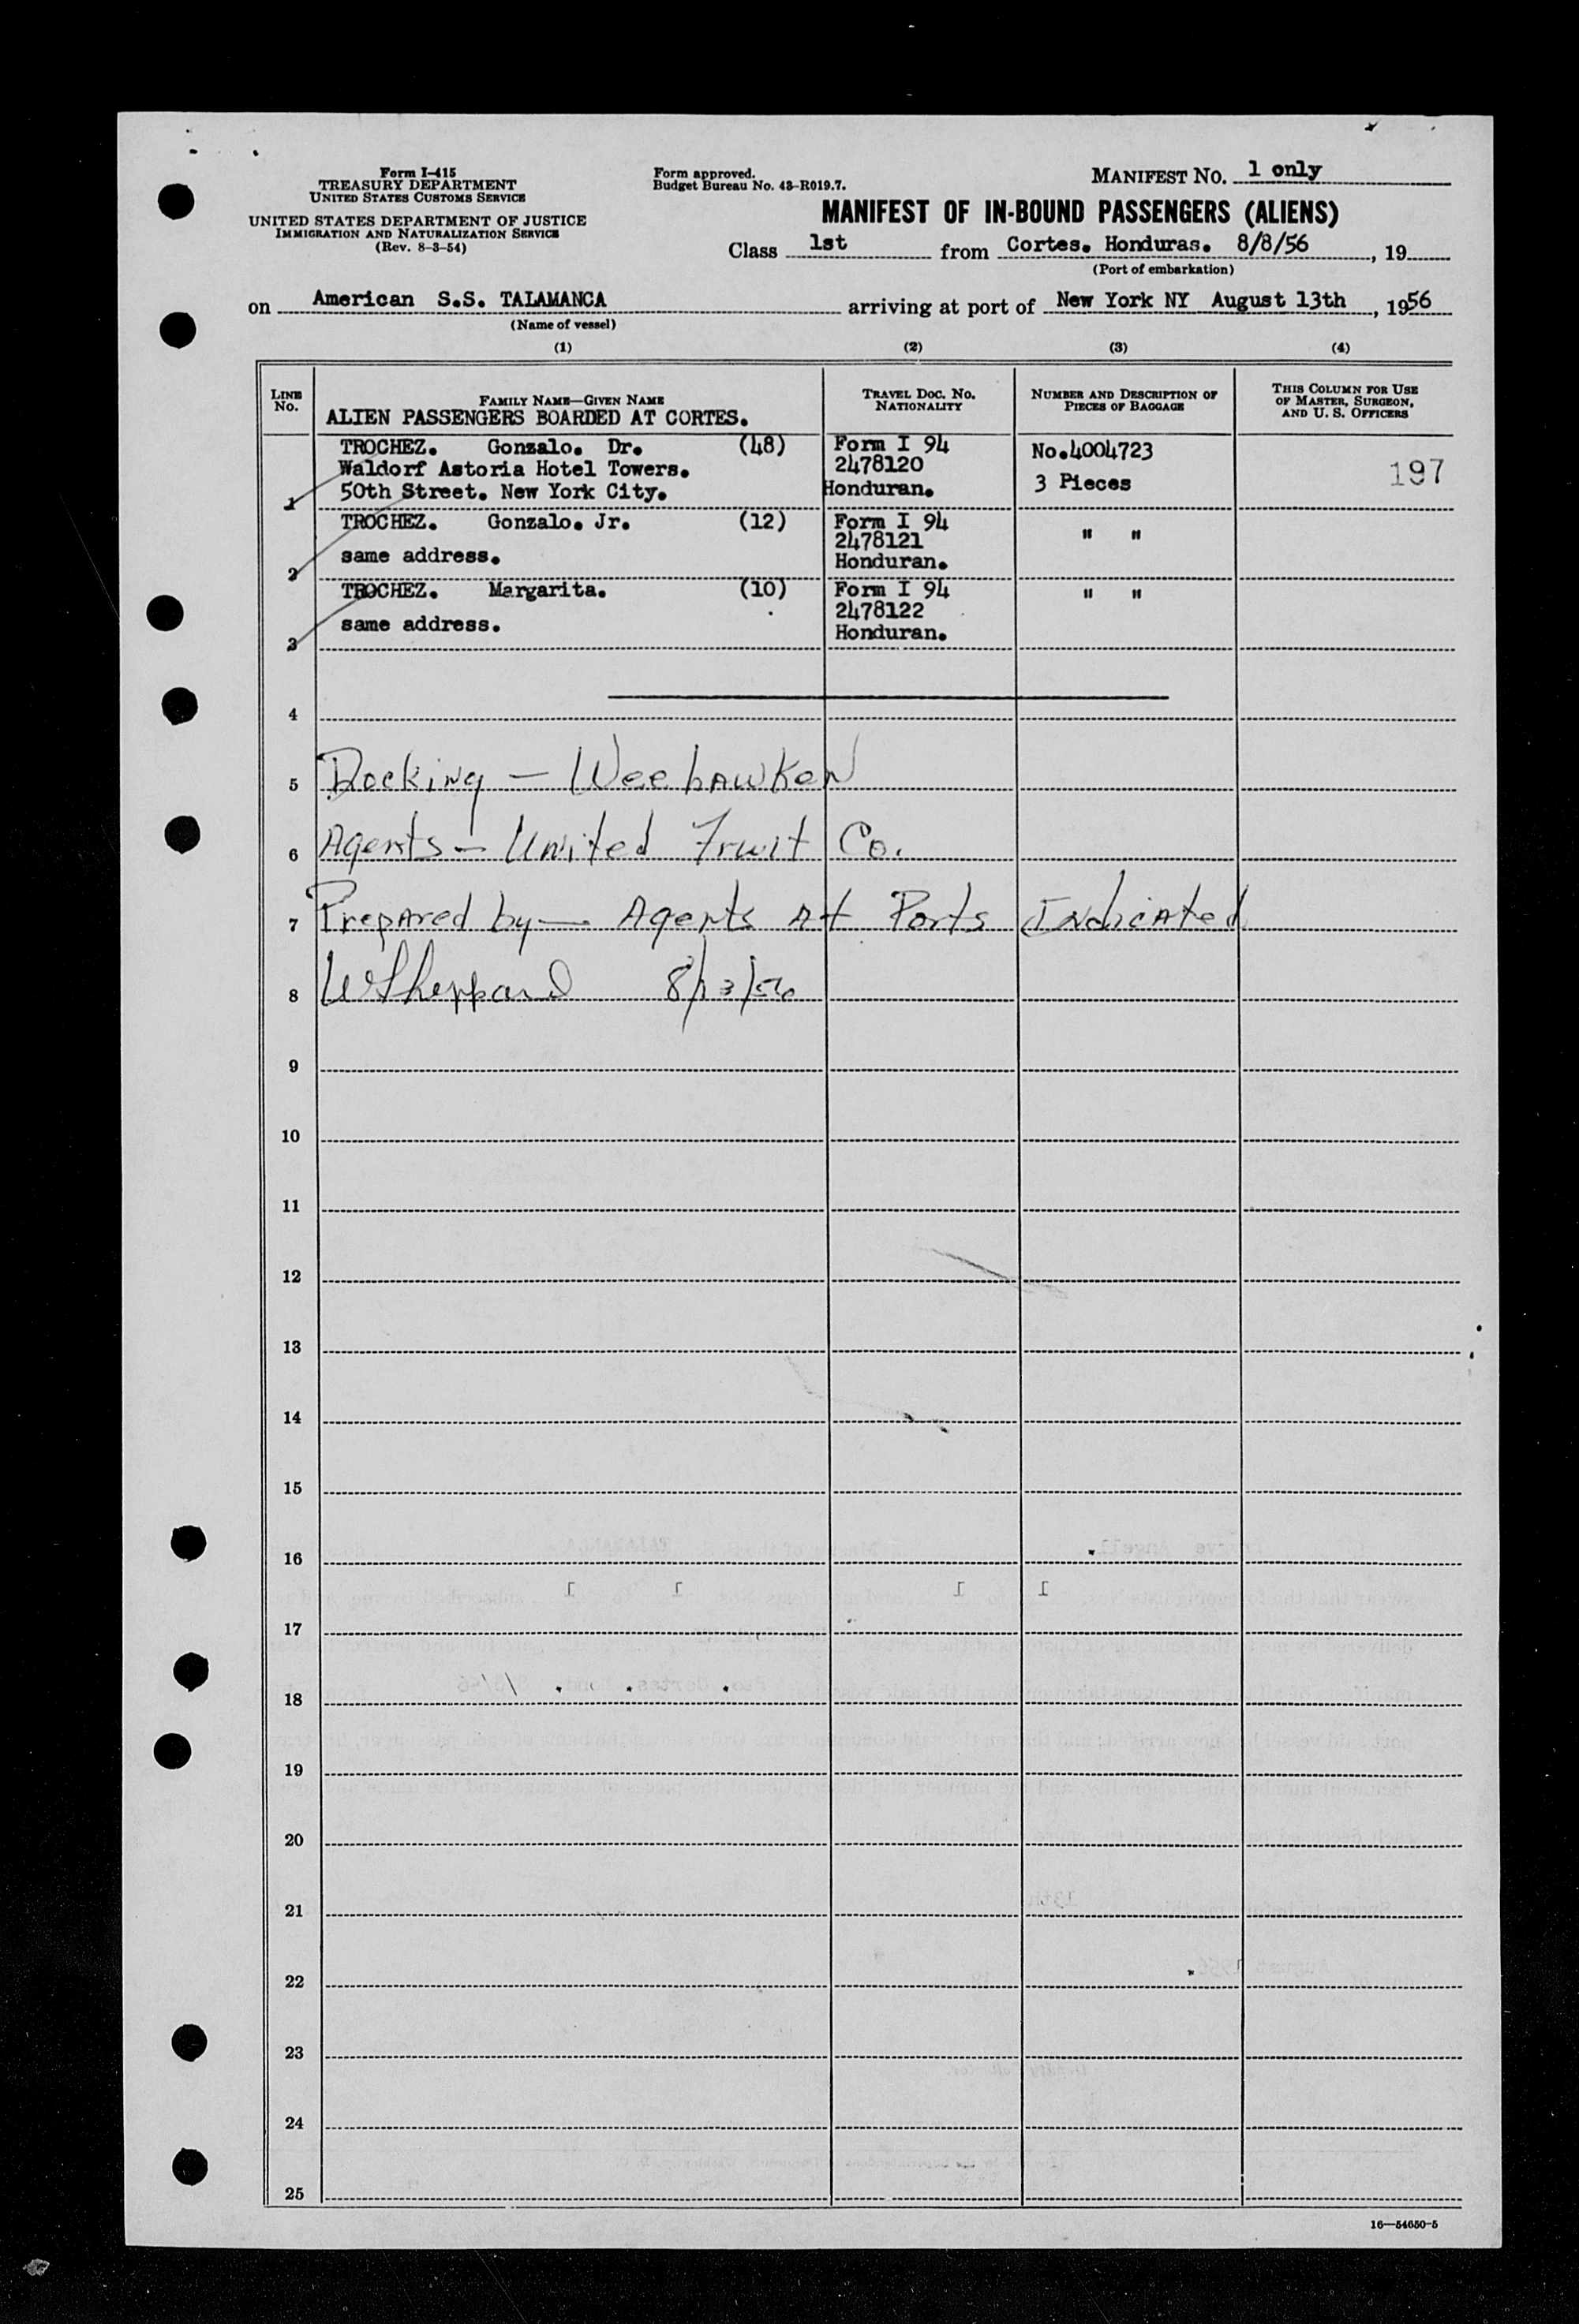 Form I-415
TREASURY DEPARTMENT
UNITED STATES CUSTOMS SERVICE
UNITED STATES DEPARTMENT OF JUSTICE
IMMIGRATION AND NATURALIZATION SERVICE
(Rev. 8-3-54)
Form approved.
Budget Bureau No. 43-R019.7.
MANIFEST NO. 1 only
MANIFEST OF IN-BOUND PASSENGERS (ALIENS)
Class 1st from Cortes. Honduras. 8/8/56, 19
(Port of embarkation)
on American S.S. TALAMANCA arriving at port of New York NY August 13th, 1956
(Name of vessel)
(1) (2) (3) (4)
LINE No.
FAMILY NAME—GIVEN NAME
ALIEN PASSENGERS BOARDED AT CORTES.
TRAVEL DOC. NO.
NATIONALITY
NUMBER AND DESCRIPTION OF
PIECES OF BAGGAGE
THIS COLUMN FOR USE
OF MASTER, SURGEON,
AND U. S. OFFICERS
1
TROCHEZ. Gonzalo. Dr. (48)
Waldorf Astoria Hotel Towers.
50th Street. New York City.
Form I 94
2478120
Honduran.
No.4004723
3 Pieces
197
2
TROCHEZ. Gonzalo. Jr. (12)
same address.
Form I 94
2478121
Honduran.
" "
3
TROCHEZ. Margarita. (10)
same address.
Form I 94
2478122
Honduran.
" "
4
5 Docking — Weehawken
6 Agents — United Fruit Co.
7 Prepared by — Agents At Ports Indicated
8 W Sheppard 8/13/56
9
10
11
12
13
14
15
16
17
18
19
20
21
22
23
24
25
16—54650-5